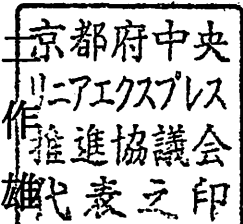 京都府中央
リニアエクスプレス
推進協議会
代表之印
二
作
雄